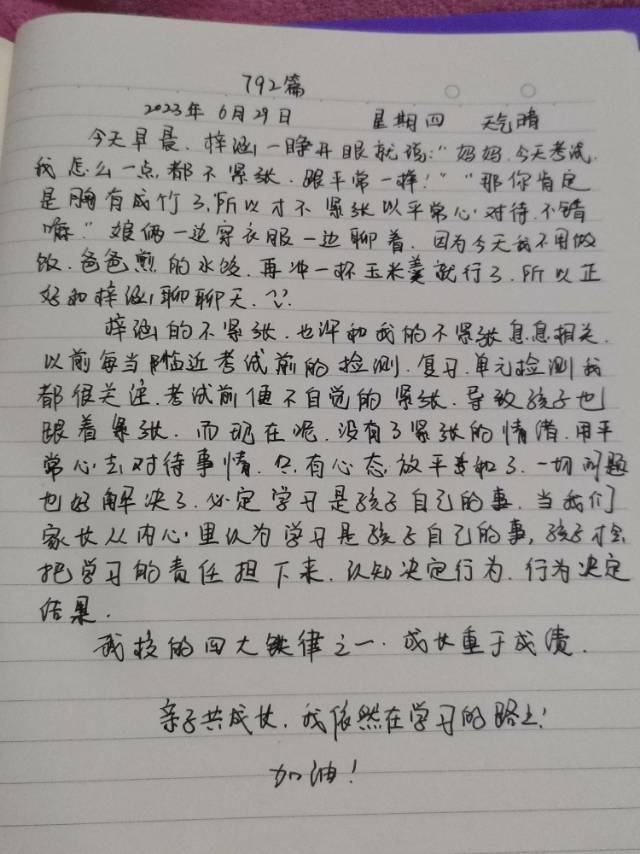 792篇
2023年 6月29日 星期四 天气晴
今天早晨.梓涵一睁开眼就说:"妈妈.今天考试.
我怎么一点都不紧张.跟平常一样!""那你肯定
是胸有成竹了,所以才不紧张以平常心对待.不错
嘛."娘俩一边穿衣服一边聊着.因为今天我不用做
饭.爸爸煎的水饺.再冲一杯玉米羹就行了.所以正
好和梓涵聊聊天.
梓涵的不紧张.也许和我的不紧张息息相关.
以前每当临近考试前的检测.复习.单元检测我
都很关注.考试前便不自觉的紧张.导致孩子也
跟着紧张.而现在呢.没有了紧张的情绪.用平
常心去对待事情.只有心态放平和了.一切问题
也好解决了.必定学习是孩子自己的事.当我们
家长从内心里认为学习是孩子自己的事,孩子才会
把学习的责任担下来.认知决定行为.行为决定
结果.
我校的四大铁律之一.成长重于成绩.
亲子共成长.我依然在学习的路上!
加油!